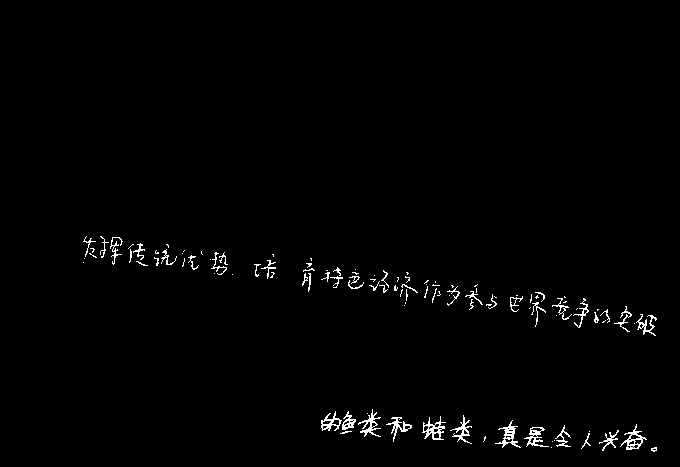 发挥传统优势.培育特色经济作为参与世界竞争的突破
的鱼类和蛙类,真是令人兴奋。